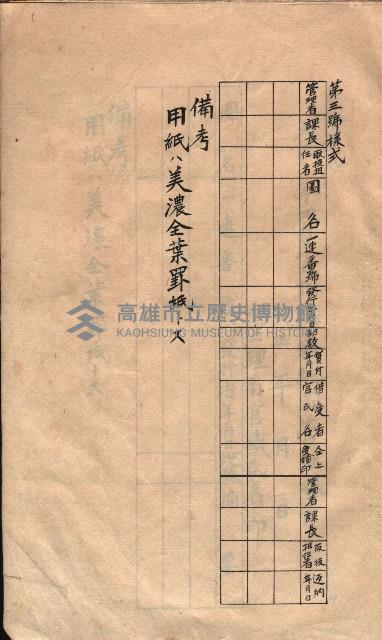 第三號樣式
管理者
課長
取扱担任者
圖名
一連番號
發行年月日
部数
貸付年月日
借受者官氏名
仝上受領印
管理者
課長
取扱担任者
返納年月日
備考
用紙ハ美濃全葉罫紙トス
高雄市立歷史博物館
KAOHSIUNG MUSEUM OF HISTORY